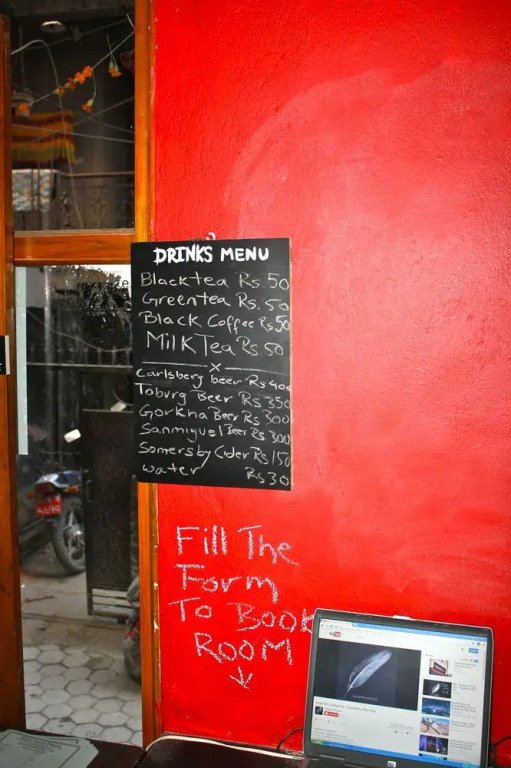 DRINKS MENU
Black tea Rs 50
Green tea Rs. 50
Black Coffee Rs 50
Milk Tea Rs 50
x
Carlsberg beer Rs 400
Toburg Beer Rs 350
Gorkha Beer Rs 300
Sanmiguel Beer Rs 300
Somersby Cider Rs 150
water Rs 30
Fill The
Form
To Book
ROOM